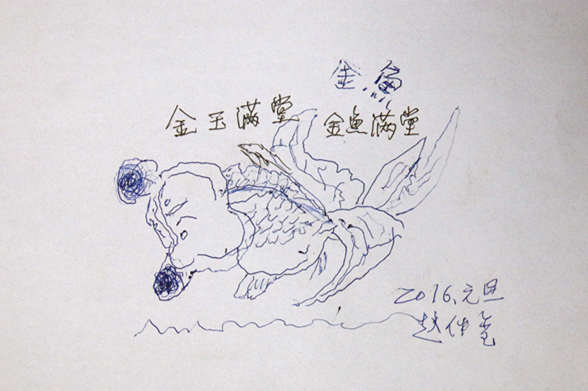 金鱼
金玉满堂 金鱼满堂
2016.元旦
赵仲